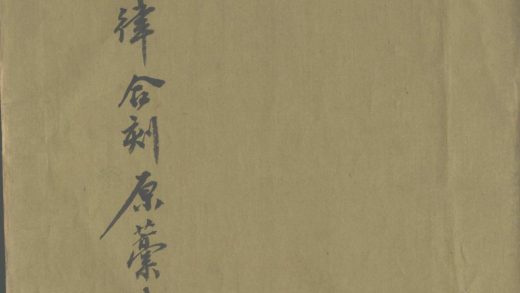 律合刻原藁